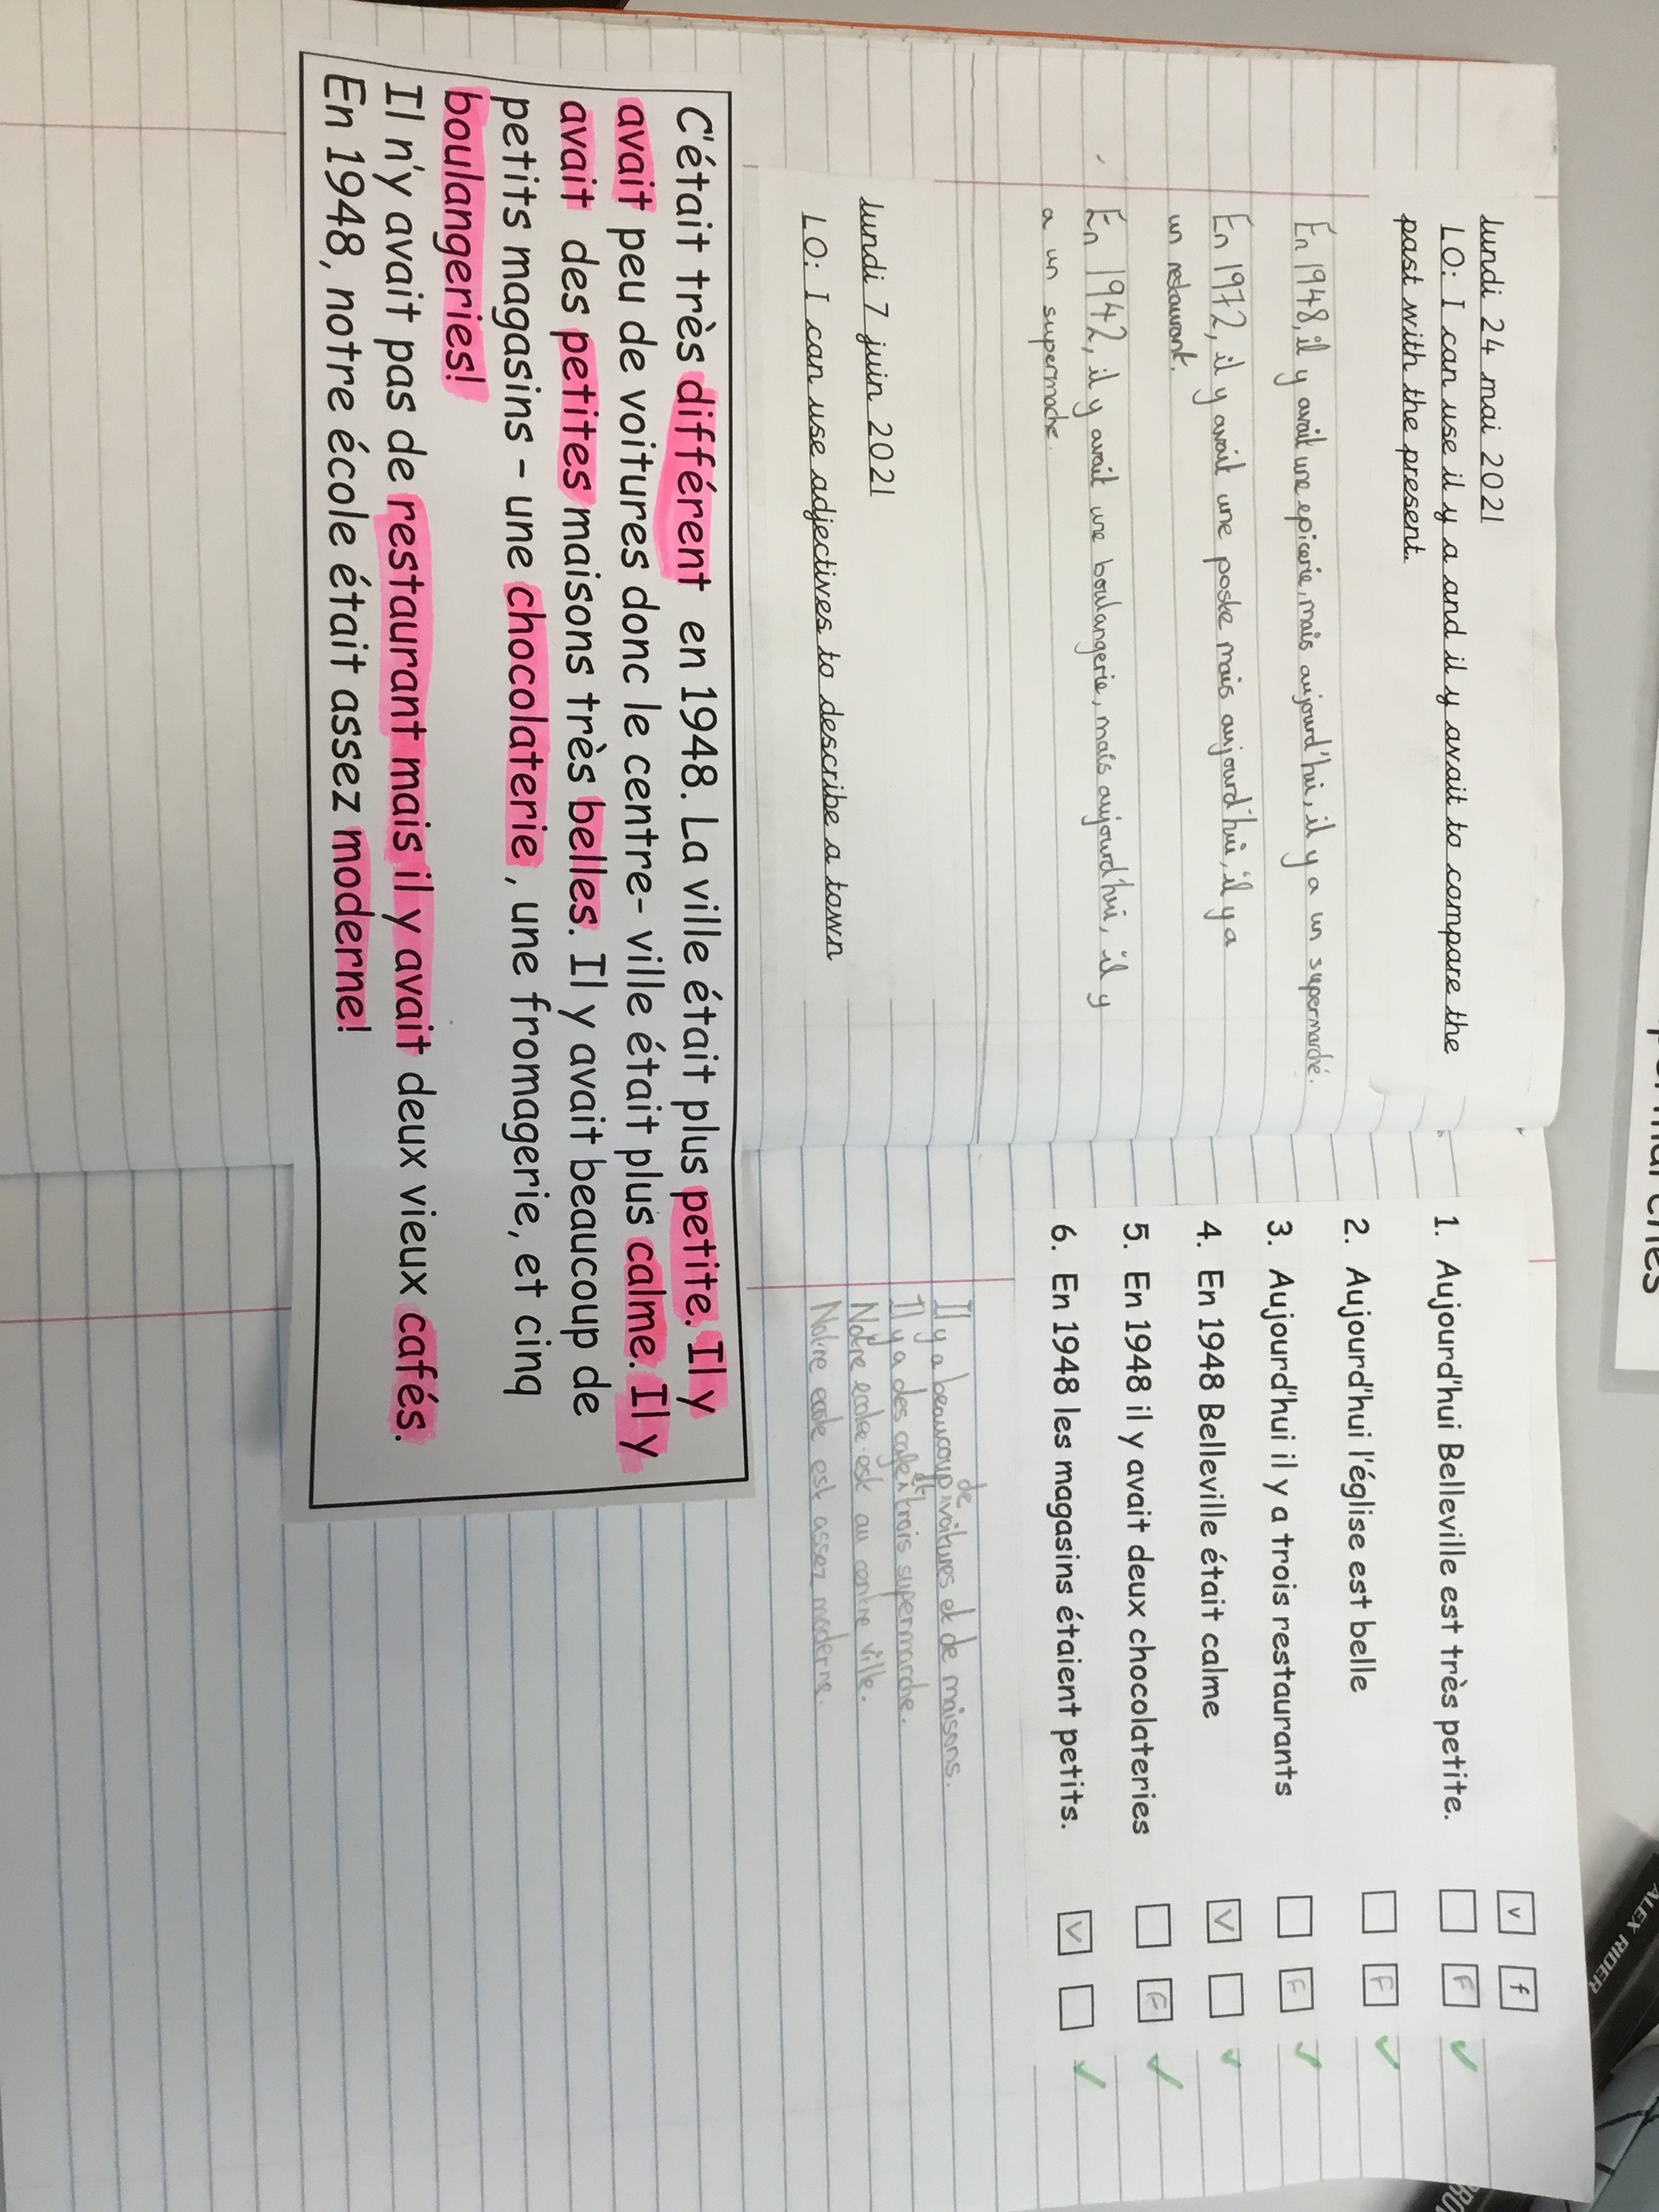 lundi 24 mai 2021
LO: I can use il y a and il y avait to compare the
past with the present.
En 1948, il y avait une epicerie, mais aujourd'hui, il y a un supermarché.
En 1972, il y avait une poste mais aujourd'hui, il y a
un restaurant.
En 1942, il y avait une boulangerie, mais aujourd'hui, il y
a un supermache.
lundi 7 juin 2021
LO: I can use adjectives to describe a town
v f
1. Aujourd'hui Belleville est très petite. F
2. Aujourd'hui l'église est belle F
3. Aujourd'hui il y a trois restaurants F
4. En 1948 Belleville était calme V
5. En 1948 il y avait deux chocolateries F
6. En 1948 les magasins étaient petits. V
Il y a beaucoup de voitures et de maisons.
Il y a des cafe et trois supermarche.
Notre ecole est au centre ville.
Notre ecole est assez moderne.
C'était très différent en 1948. La ville était plus petite. Il y
avait peu de voitures donc le centre- ville était plus calme. Il y
avait des petites maisons très belles. Il y avait beaucoup de
petits magasins - une chocolaterie, une fromagerie, et cinq
boulangeries!
Il n'y avait pas de restaurant mais il y avait deux vieux cafés.
En 1948, notre école était assez moderne!
ALEX RIDER